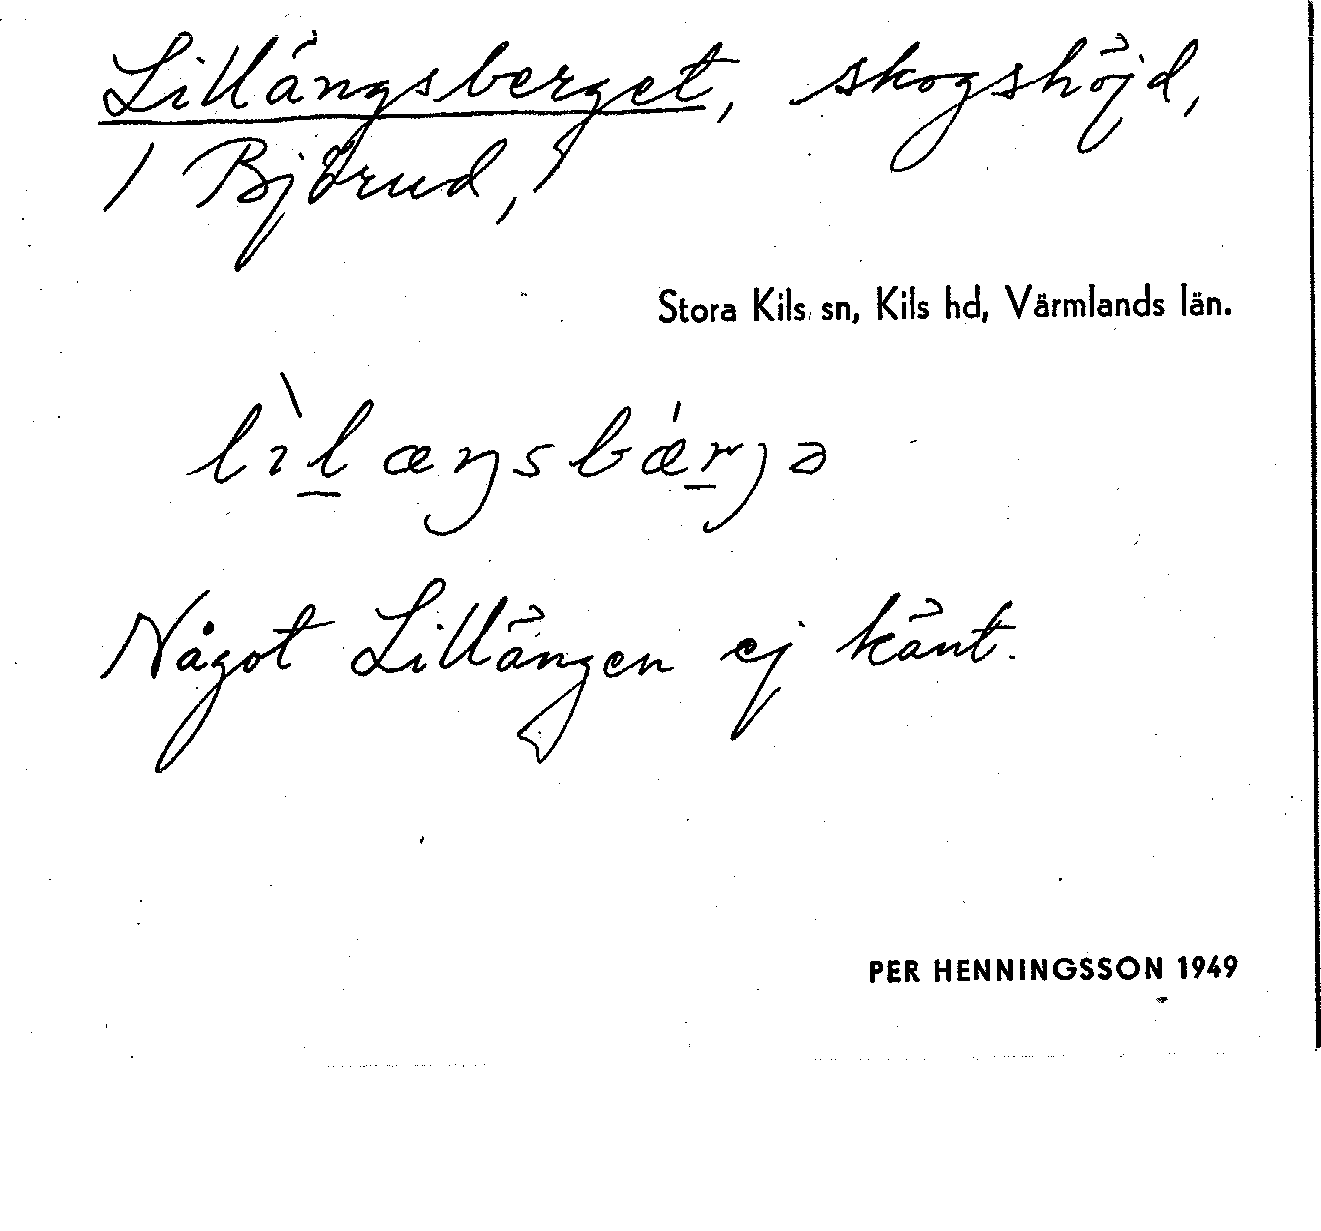 Lillängsberget, skogshöjd,
/ Björud,
Stora Kils sn, Kils hd, Värmlands län.
lìl̠æŋsbǽr̠jə
Något Lillängen ej känt.
PER HENNINGSSON 1949